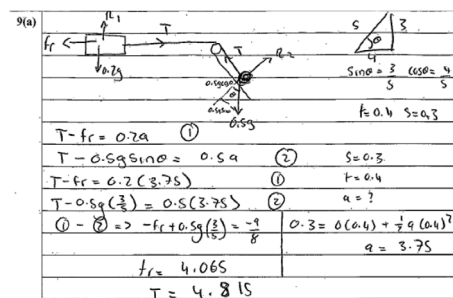 9(a)
R₁
fr
T
0.2g
T
R₂
0.5gcosθ
θ
0.5g
5
3
θ
4
sinθ = 3/5 cosθ = 4/5
t=0.4 s=0.3
T - fr = 0.2a ①
T - 0.5g sinθ = 0.5a ② s=0.3
T - fr = 0.2(3.75) ① t=0.4
T - 0.5g(3/5) = 0.5(3.75) ② a=?
① - ② => -fr + 0.5g(3/5) = -9/8 0.3 = 0(0.4) + ½a(0.4)²
a = 3.75
fr = 4.065
T = 4.815